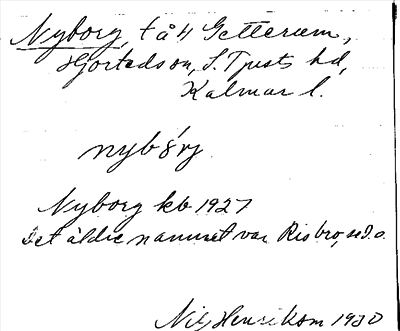 Nyborg, t å 4 Getterum,
Hjorted sn, S. Tjusts hd,
Kalmar l.
nybórj
Nyborg kb 1927
Det äldre namnet var Risbro, s.d.o.
Nils Henrikson 1930